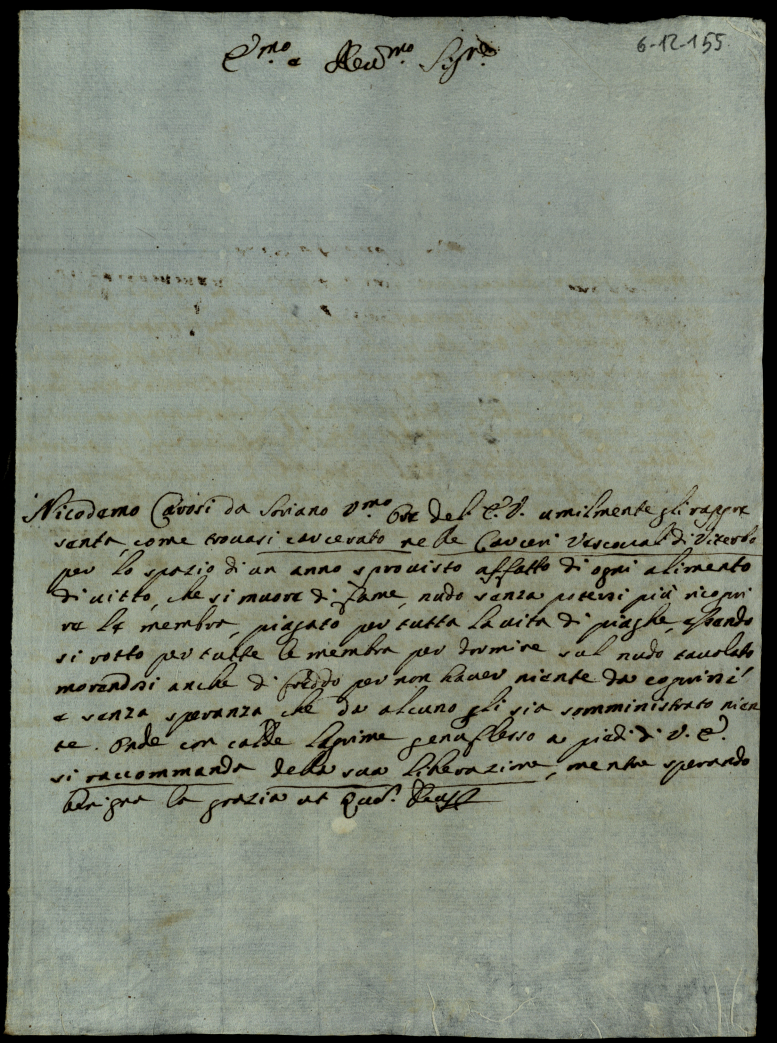 6-12-155
E.mo e Reu.mo Sig.re
Nicodemo Cavosi da Soriano V.mo Ore del. E. V. umilmente gli rappre
senta, come trouasi carcerato nelle Carceri Vescouali di Viterbo
per lo spazio di un anno sprouisto affatto di ogni alimento
di uitto, che si muore di fame, nudo senza potersi più ricopri
re le membra, piagato per tutta la uita di piaghe, essendo
si rotto per tutte le membra per dormire sul nudo tauolato
morendosi anche di freddo per non hauer niente da coprirsi
e senza speranza che da alcuno gli sia somministrato nien
te. Onde con calde lagrime genuflesso a piedi di V. E.
si raccommanda della sua liberazione, mentre sperando
benigna la grazia ut Deus